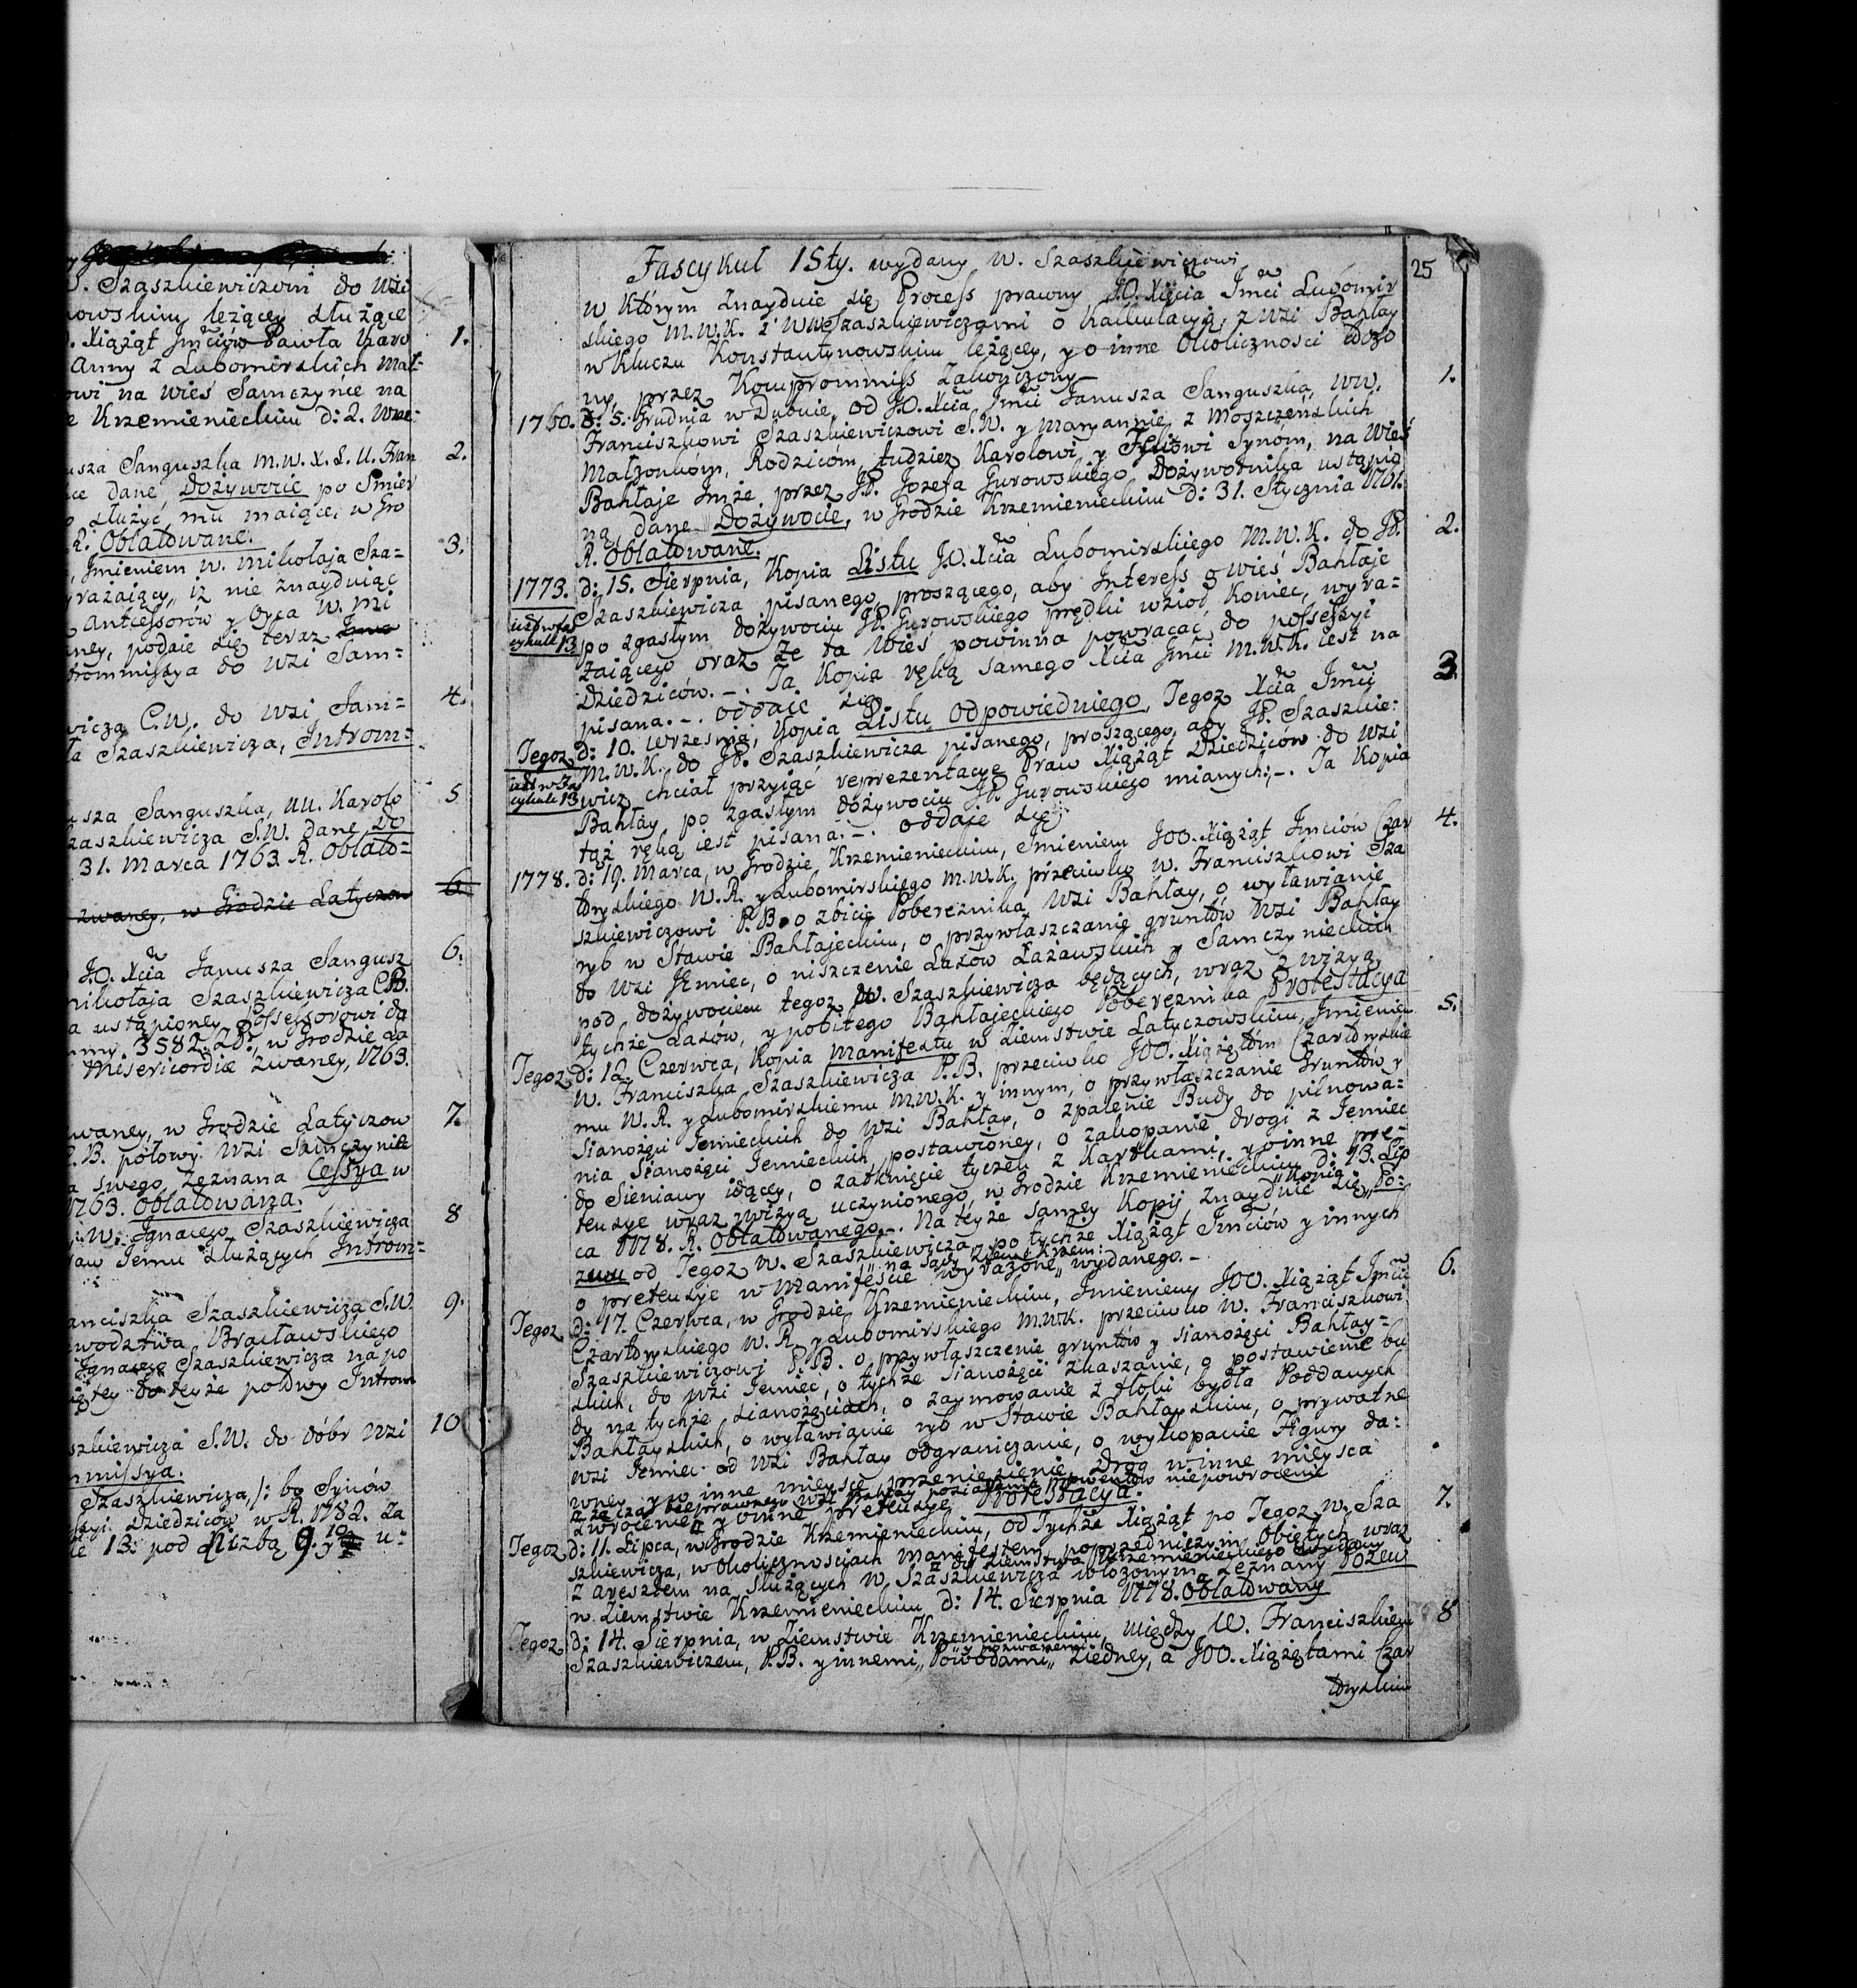 S. Szaszkiewiczowi do Wsi
nowskim leżącey służące
O. Xiążąt Jmciów Pawła Karo 1.
Anny z Lubomirskich Mał-
owi na wieś Samczyńce na
e Krzemienieckim d: 2. Wrze-
usza Sanguszka M.W.X.L. U. Fran 2.
ce dane, Dożywocie po Śmier
o służyć mu maiące, w Gro
R. Oblatowane. 3.
, Jmieniem W. Mikołaja Sza-
yrażaiący, iż nie znayduiąc
Antcessorów y Oyca W.
ney, podaie się teraz
trommissya do Wsi Sam-
wicza C.W. do Wsi Sam- 4.
ła Szaszkiewicza, Introm-
usza Sanguszka, UU. Karolo 5
zaszkiewicza S.W. dane Do
31. Marca 1763. R. Oblato-
zwaney, w Grodzie Latyczow 6
J.O. Xcia Janusza Sangusz 6.
Mikołaja Szaszkiewicza C.B.
a ustąpioney, Possessorowi da
mmy. 3582. ZP., w Grodzie La
Misericordiæ zwaney, 1763.
zwaney, w Grodzie Latyczow 7.
P.B. połowy Wsi Samczyniec
a swego zeznana Cessya w
1763. Oblatowana.
W. Jgnacego Szaszkiewicza 8
raw Jemu służących Introm-
anciszka Szaszkiewicza S.W. 9.
ewodztwa Bracławskiego
Jgnacego Szaszkiewicza na po
iętey do teyże połowy Introm
szkiewicza S.W. do dóbr Wsi 10
mmissya.
Szaszkiewicza, /: bo Synów
ssyi Dziedziców w R. 1782. Za
le 13: pod Liczbą 9. y 10 u-
25
Fascykuł 1Sty. wydany W. Szaszkiewiczowi
w którym znayduie się Process prawny J.O. Xięcia Jmci Lubomir
skiego M.W.K. z WW Szaszkiewiczami o Kalkulacyą z Wsi Bahłay
w Kluczu Konstantynowskim leżącey, y o inne Okoliczności Toczo
ny, przez Kompromiss zakończony
1760. d: 5. Grudnia w Dubnie, od J.O. Xcia Jmci Janusza Sanguszka, WW. 1.
Franciszkowi Szaszkiewiczowi S.W. y Maryannie z Moszczeńskich
Małżonkóm, Rodzicóm, tudzież Karolowi y Felixowi Synóm, na Wieś
Bahłaje Jmże przez JP. Jozefa Gurowskiego Dożywotnika ustąpio
ną, dane Dożywocie, w Grodzie Krzemienieckim d: 31. Stycznia 1761.
R. Oblatowane.
1773. d: 15. Sierpnia, Kopia Listu J.O. Xcia Lubomirskiego M.W.K. do JP. 2.
Szaszkiewicza pisanego, proszącego, aby Interess o wieś Bahłaje
iuż w Fas
cykule 13 po zgasłym dożywociu JP. Gurowskiego prędki wzioł koniec, wyra-
żaiącego oraz że ta Wieś powinna powracać do possessyi
Dziedziców. –. Ta Kopia ręką samego Xcia Jmci M.W.K. iest na
pisana. –. oddaie się
Tegoż d: 10. Września, Kopia Listu odpowiedniego Tegoż Xcia Jmci 3.
M.W.K. do JP. Szaszkiewicza pisanego, proszącego, aby JP. Szaszkie-
iuż w Fas
cykule 13 wicz chciał przyiąć reprezentacye Praw Xiążąt Dziedziców do Wsi
Bahłay po zgasłym dożywociu JP. Gurowskiego mianych; –. Ta Kopia
taż ręką iest pisana. –. oddaie się
1778. d: 19. Marca, w Grodzie Krzemienieckim, Jmieniem JOO. Xiążąt Jmciów Czar 4.
toryskiego W.R. y Lubomirskiego M.W.K. przeciwko W. Franciszkowi Sza
szkiewiczowi P.B. o zbicie Pobereżnika Wsi Bahłay, o wyławianie
ryb w Stawie Bahłajeckim, o przywłaszczanie gruntów Wsi Bahłay
do Wsi Jemiec, o niszczenie Lasów Łażawskich y Samczynieckich
pod dożywociem tegoż W. Szaszkiewicza będących, wraz z wizyą
tychże Lasów, y pobitego Bahłajeckiego Pobereżnika Protestacya
Tegoż d: 12 Czerwca, Kopia Manifestu w Ziemstwie Latyczowskim, Jmieniem 5.
W. Franciszka Szaszkiewicza P.B. przeciwko JOO. Xiążętóm Czartoryskie
mu W.R. y Lubomirskiemu M.W.K. y innym, o przywłaszczanie Gruntów y
Sianożęci Jemieckich do Wsi Bahłay, o zpalenie Budy do pilnowa-
nia Sianożęci Jemieckich postawioney, o zakopanie drogi z Jemiec
do Sieniawy idącey, o zatknięcie tyczek z Kartkami, y o inne pre-
tensye wraz z wizyą uczynionego, w Grodzie Krzemienieckim d: 13. Lip
ca 1778. R. Oblatowanego –. Na teyże samey Kopij znayduie się „Kopia„ Po-
zwu od Tegoż W. Szaszkiewicza po tychże Xiążąt Jmciów y innych
o pretensye w Manifeście wyrażone „na Sąd Ziem: Krzem:„ wydanego. –
Tegoż d: 17. Czerwca, w Grodzie Krzemienieckim, Jmieniem JOO. Xiążąt Jmciu 6.
Czartoryskiego W.R. y Lubomirskiego M.W.K. przeciwko W. Franciszkowi
Szaszkiewiczowi P.B. o przywłaszczenie gruntów y Sianożęci Bahłay-
skich, do Wsi Jemiec, o tychże Sianożęci skaszanie, o postawienie bu
dy na tychże Sianożęciach, o zaymowanie z Roli bydła Poddanych
Bahłayskich, o wyławianie ryb w Stawie Bahłayskim, o prywatne
Wsi Jemiec od Wsi Bahłay odgraniczanie, o wykopanie Figury da-
wney y w inne mieysce przeniesienie, Dróg w inne mieysca
zwrócenie y o inne pretensye Protestacya.
Tegoż d: 11. Lipca, w Grodzie Krzemienieckim, od Tychże Xiążąt po Tegoż W. Sza 7.
szkiewicza, w okolicznościach Manifestem poprzedniczym obiętych wraz
z aresztem na służących W. Szaszkiewicza włożonym zeznany Pozew
w Ziemstwie Krzemienieckim d: 14. Sierpnia 1778. Oblatowany
Tegoż d: 14. Sierpnia, w Ziemstwie Krzemienieckim, między W. Franciszkiem 8
Szaszkiewiczem, P.B. y innemi „Powodami„ y pozwanemi z iedney, a JOO. Xiążętami Czar
toryskim